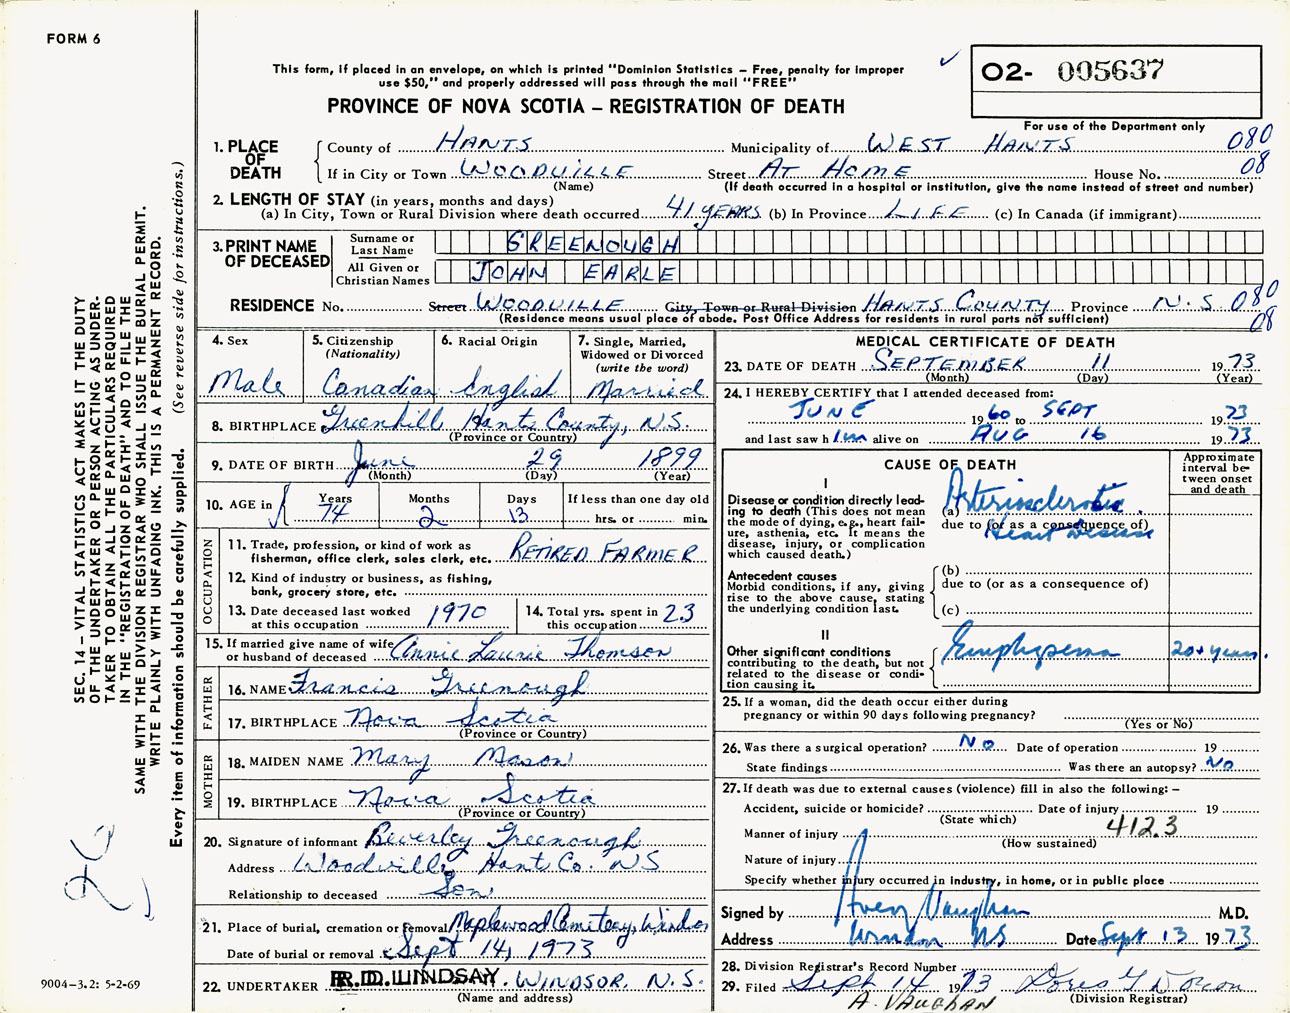 FORM 6
This form, if placed in an envelope, on which is printed "Dominion Statistics – Free, penalty for improper
use $50," and properly addressed will pass through the mail "FREE"
PROVINCE OF NOVA SCOTIA – REGISTRATION OF DEATH
O2- 005637
For use of the Department only
1. PLACE OF DEATH
County of HANTS Municipality of WEST HANTS 080
If in City or Town WOODVILLE Street AT HOME House No. 08
(Name) (If death occurred in a hospital or institution, give the name instead of street and number)
2. LENGTH OF STAY (in years, months and days)
(a) In City, Town or Rural Division where death occurred 41 YEARS (b) In Province LIFE (c) In Canada (if immigrant)
3. PRINT NAME OF DECEASED
Surname or Last Name GREENOUGH
All Given or Christian Names JOHN EARLE
RESIDENCE No. Street WOODVILLE City, Town or Rural Division HANTS COUNTY Province N.S. 080
(Residence means usual place of abode. Post Office Address for residents in rural parts not sufficient) 08
4. Sex
Male
5. Citizenship
(Nationality)
Canadian
6. Racial Origin
English
7. Single, Married,
Widowed or Divorced
(write the word)
Married
8. BIRTHPLACE Greenhill Hants County, N.S.
(Province or Country)
9. DATE OF BIRTH June 29 1899
(Month) (Day) (Year)
10. AGE in
Years Months Days If less than one day old
74 2 13 hrs. or min.
OCCUPATION
11. Trade, profession, or kind of work as
fisherman, office clerk, sales clerk, etc. RETIRED FARMER
12. Kind of industry or business, as fishing,
bank, grocery store, etc.
13. Date deceased last worked
at this occupation 1970
14. Total yrs. spent in
this occupation 23
15. If married give name of wife
or husband of deceased Annie Laurie Thomson
FATHER
16. NAME Francis Greenough
17. BIRTHPLACE Nova Scotia
(Province or Country)
MOTHER
18. MAIDEN NAME Mary Mason
19. BIRTHPLACE Nova Scotia
(Province or Country)
20. Signature of informant Beverley Greenough
Address Woodville Hant Co. NS
Relationship to deceased Son
21. Place of burial, cremation or removal Maplewood Cemetery, Windsor
Date of burial or removal Sept 14, 1973
22. UNDERTAKER R.D. LINDSAY. WINDSOR. N.S.
(Name and address)
MEDICAL CERTIFICATE OF DEATH
23. DATE OF DEATH SEPTEMBER 11 1973
(Month) (Day) (Year)
24. I HEREBY CERTIFY that I attended deceased from:
JUNE 1960 to SEPT 1973
and last saw him alive on AUG 16 1973
CAUSE OF DEATH
Approximate
interval be-
tween onset
and death
I
Disease or condition directly lead-
ing to death (This does not mean
the mode of dying, e.g., heart fail-
ure, asthenia, etc. It means the
disease, injury, or complication
which caused death.)
(a) Arteriosclerotic
due to (or as a consequence of)
Heart Disease
Antecedent causes
Morbid conditions, if any, giving
rise to the above cause, stating
the underlying condition last.
(b)
due to (or as a consequence of)
(c)
II
Other significant conditions
contributing to the death, but not
related to the disease or condi-
tion causing it.
Emphysema 20+ years.
25. If a woman, did the death occur either during
pregnancy or within 90 days following pregnancy?
(Yes or No)
26. Was there a surgical operation? NO Date of operation 19
State findings Was there an autopsy? NO
27. If death was due to external causes (violence) fill in also the following: –
Accident, suicide or homicide? Date of injury 19
(State which)
Manner of injury 412.3
(How sustained)
Nature of injury
Specify whether injury occurred in industry, in home, or in public place
Signed by Avery Vaughan M.D.
Address Windsor NS Date Sept 13 1973
28. Division Registrar's Record Number
29. Filed Sept 14 1973 Doris
A. VAUGHAN (Division Registrar)
SEC. 14 – VITAL STATISTICS ACT MAKES IT THE DUTY
OF THE UNDERTAKER OR PERSON ACTING AS UNDER-
TAKER TO OBTAIN ALL THE PARTICULARS REQUIRED
IN THE "REGISTRATION OF DEATH" AND TO FILE THE
SAME WITH THE DIVISION REGISTRAR WHO SHALL ISSUE THE BURIAL PERMIT.
WRITE PLAINLY WITH UNFADING INK. THIS IS A PERMANENT RECORD.
Every item of information should be carefully supplied. (See reverse side for instructions.)
9004-3.2: 5-2-69